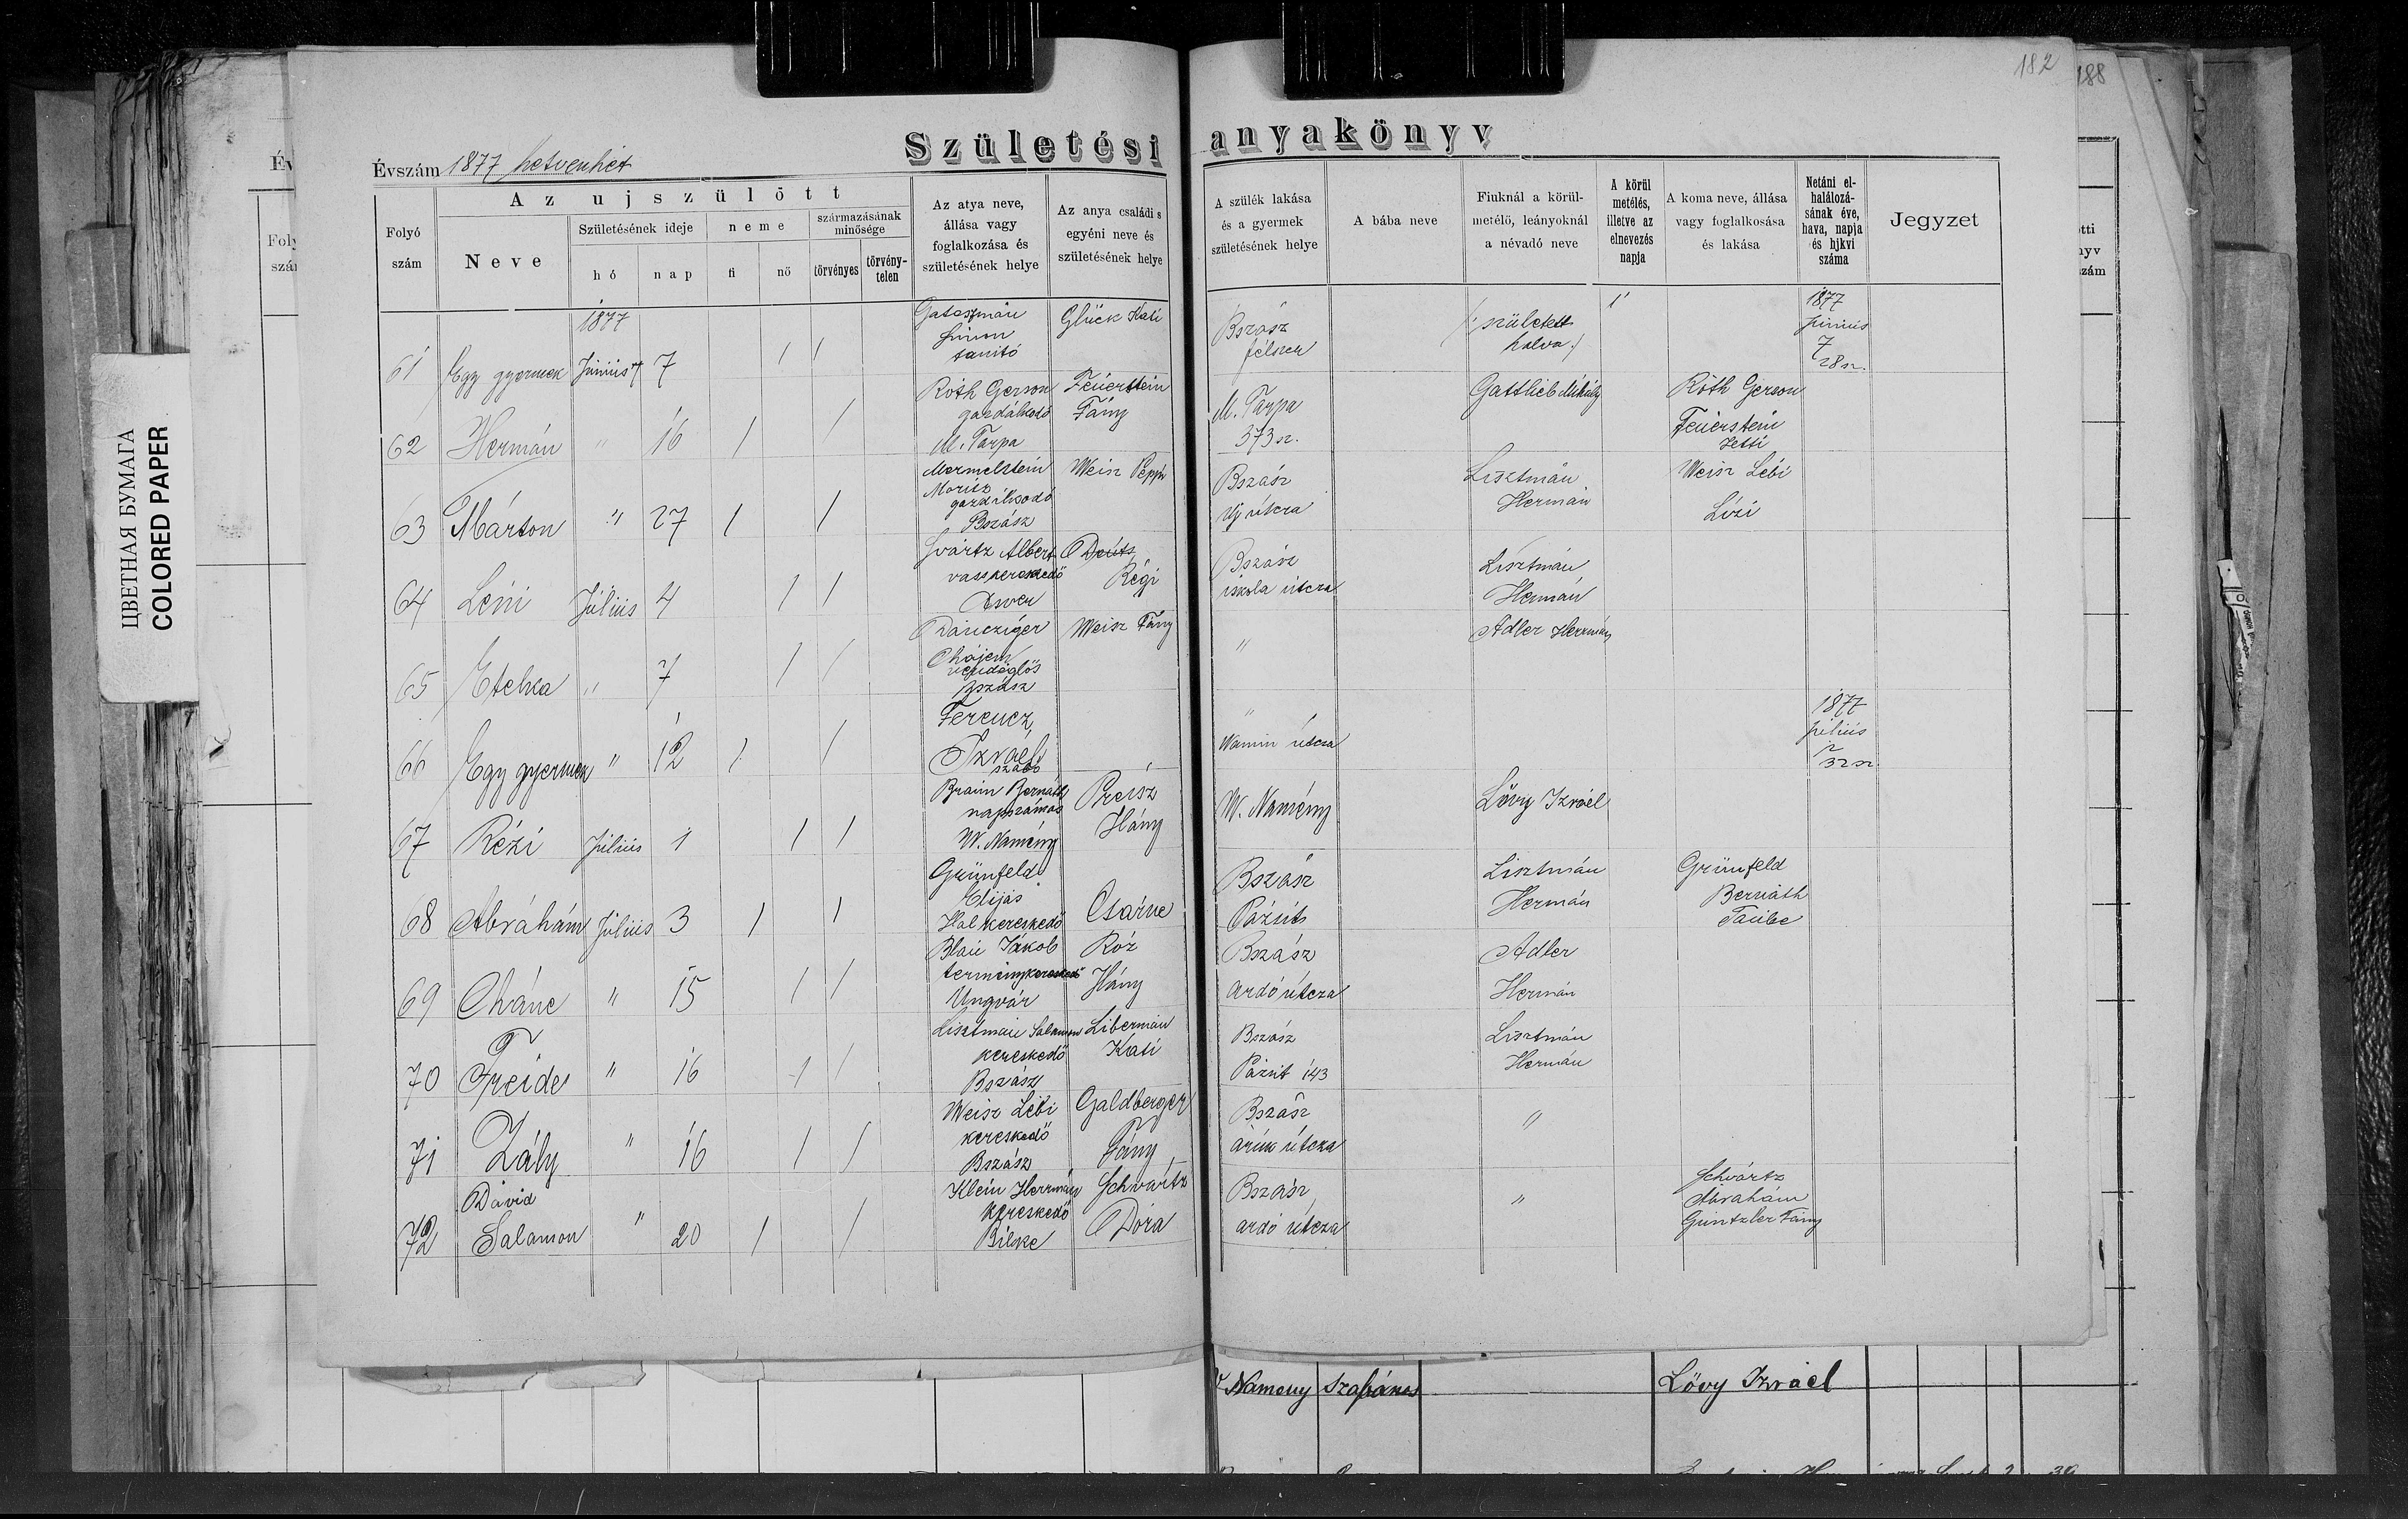 182
188
Születési anyakönyv
Évszám 1877 hetvenhét
Az ujszülött
Folyó szám
Neve
Születésének ideje
hó
nap
neme
fi
nö
származásának minősége
törvényes
törvény-telen
Az atya neve, állása vagy foglalkozása és születésének helye
Az anya családi s egyéni neve és születésének helye
A szülék lakása és a gyermek születésének helye
A bába neve
Fiuknál a körül-metélö, leányoknál a névadó neve
A körül metélés, illetve az elnevezés napja
A koma neve, állása vagy foglalkosása és lakása
Netáni el-halálozá-sának éve, hava, napja és hjkvi száma
Jegyzet
1877
61 Egy gyermek Június 7 1 1 tanitó Glück Kati Bszász született halva 1877 június 7 28 sz.
62 Hermán " 16 1 1 Róth Gerson gazdálkodó M. Tarpa Feüerstein Fány M. Tarpa 373 sz. Gattlieb Mihály Róth Gerson Feüerstein Jetti
63 Márton " 27 1 1 Mermelstein Moritz gazdálkodó Bszász Weisz Peppi Bszász Uj útcza Lisztmán Hermán Weisz Lébi Lízi
64 Leni Július 4 1 1 Svártz Albert vasskereskedő Deúts Régi Bszász iskola útcza Lisztmán Hermán
65 Etelka " 7 1 1 Dancziger Chájem vendéglős Bszász Weisz Fány " Adler Hermán
66 Egy gyermek " 12 1 1 Ferencz Izraél szabó " útcza 1877 július 32 sz.
67 Rézi Július 1 1 1 Braun Bernáth napszámos W. Namény Preisz Hány W. Namény Lövy Izráel
68 Abrahám Július 3 1 1 Grünfeld Elijás Hal kereskedő Csárne Bszász Pázsit Lisztmán Hermán Grünfeld Bernáth Taúbe
69 Cháne " 15 1 1 Blau Jákob terménykereskedő Ungvár Róz Hány Bszász ardó útcza Adler Hermán
70 Freide " 16 1 1 Lisztman Salamon kereskedő Bszász Liberman Kati Bszász Pázsit 143 Lisztmán Hermán
71 Zály " 16 1 1 Weisz Lébi kereskedő Bszász Galdberger Fány Bszász útcza "
72 Dávid Salamon " 20 1 1 Klein Hermán kereskedő Bilke Schvártz Dóra Bszász ardó útcza " Schvártz Abrahám Güntzler Fány
Namény
Lövy Izráel
ЦВЕТНАЯ БУМАГА
COLORED PAPER